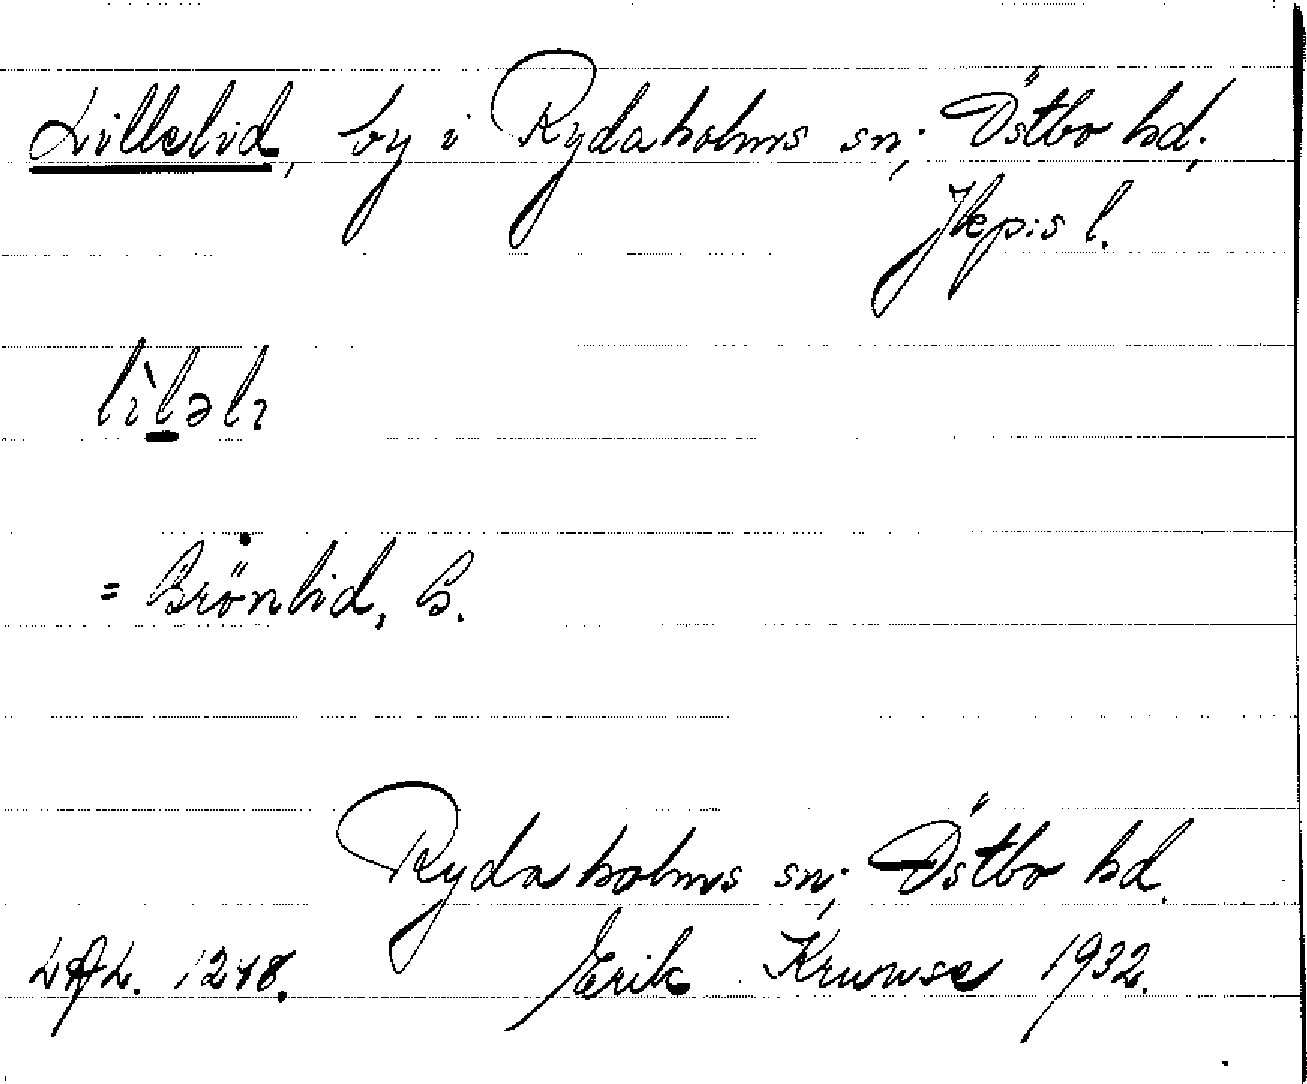 Lillelid, by i Rydaholms sn; Östbo hd;
Jkp:s l.
lìləlı
= Brönlid, B.
Rydaholms sn; Östbo hd.
LAL. 1248. Erik Kruuse 1932.